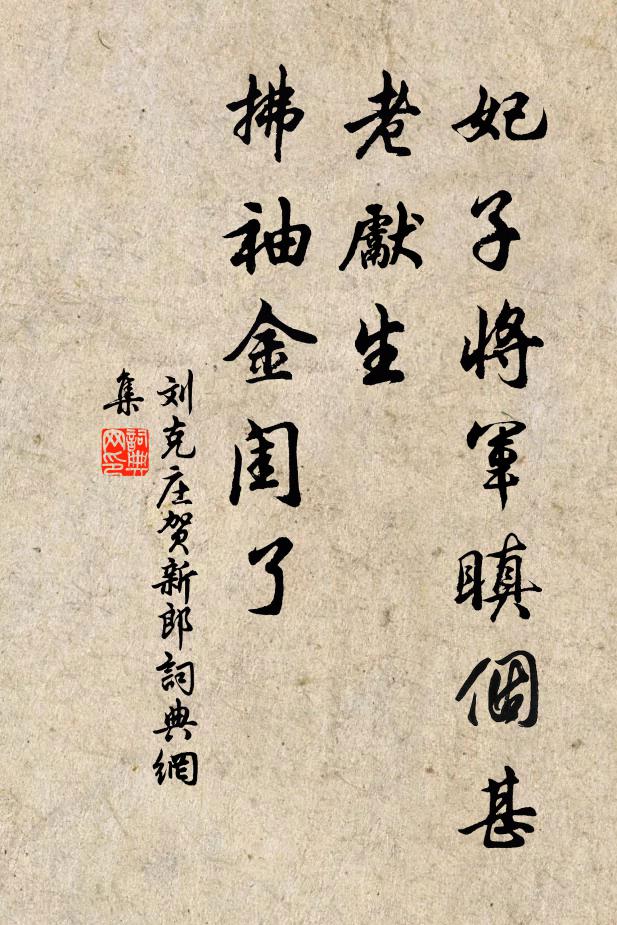 妃子將軍瞋個甚
老獻生
拂袖金閨了
刘克庄贺新郎詞典網
集
詞典
网印